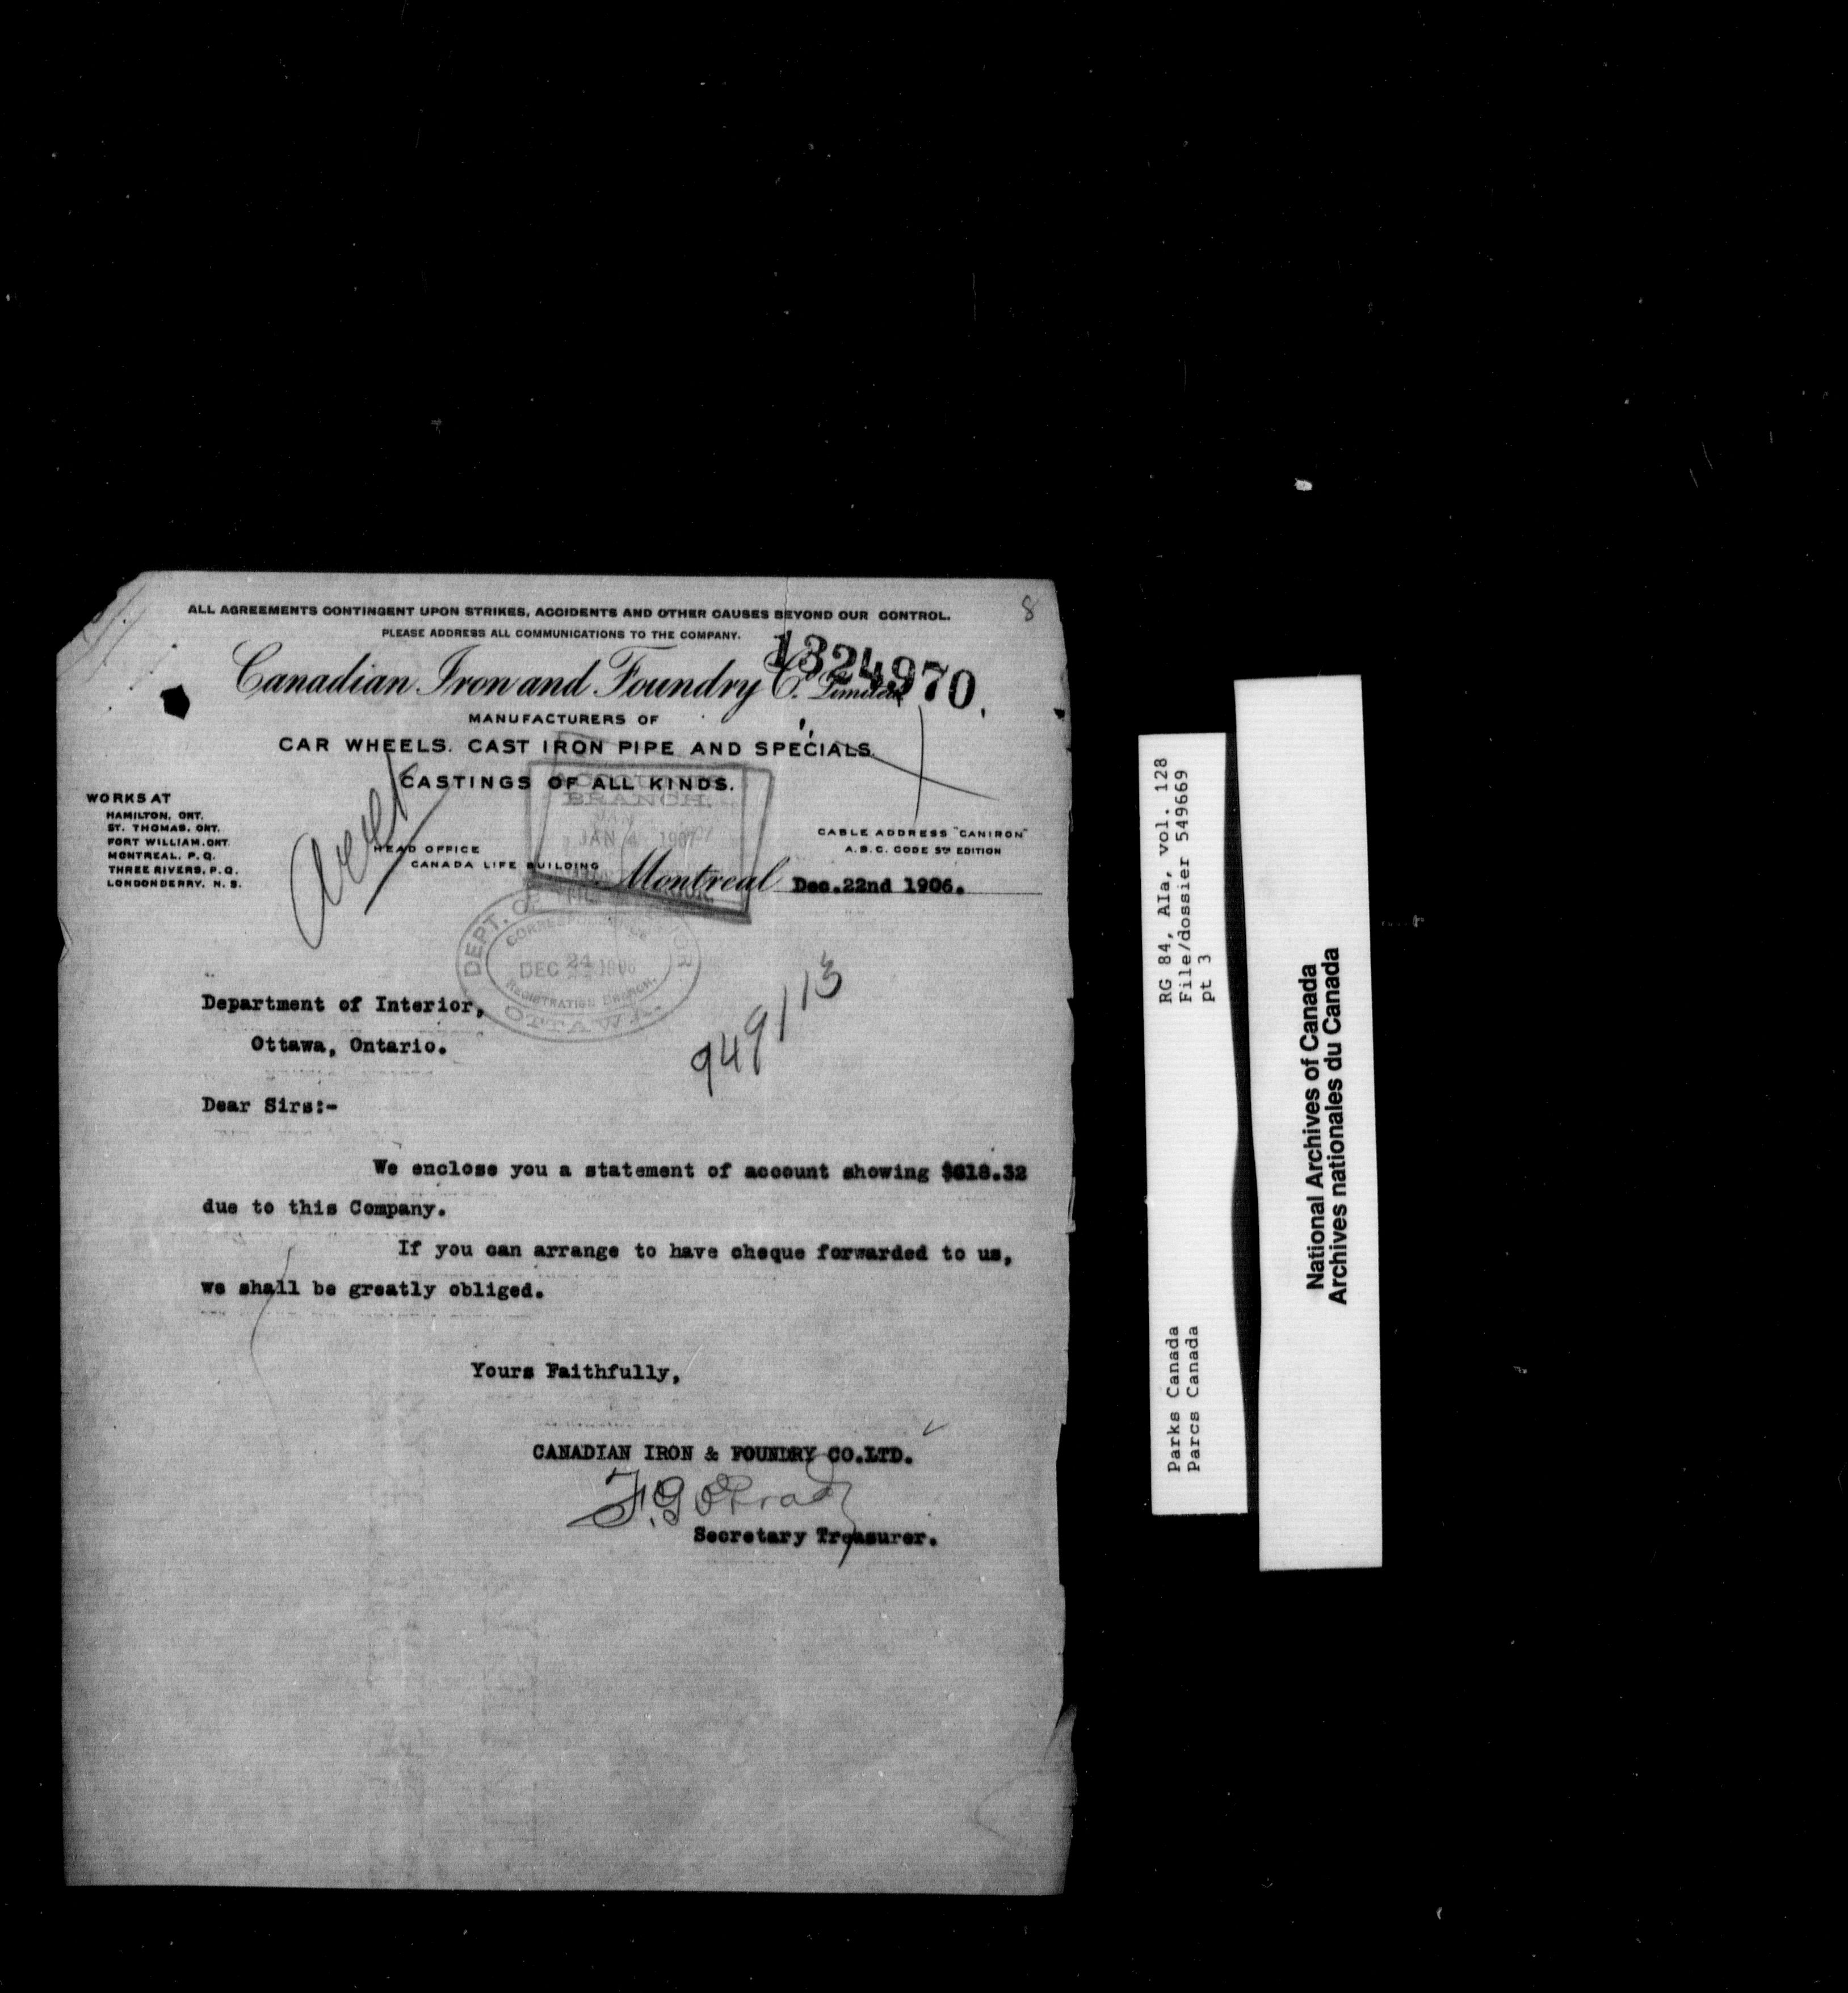 8
ALL AGREEMENTS CONTINGENT UPON STRIKES, ACCIDENTS AND OTHER CAUSES BEYOND OUR CONTROL.
PLEASE ADDRESS ALL COMMUNICATIONS TO THE COMPANY.
1324970
Canadian Iron and Foundry Co. Limited.
MANUFACTURERS OF
CAR WHEELS. CAST IRON PIPE AND SPECIALS.
CASTINGS OF ALL KINDS.
ACCOUNTS
BRANCH.
JAN 4 1907
WORKS AT
HAMILTON, ONT.
ST. THOMAS, ONT.
FORT WILLIAM, ONT.
MONTREAL, P. Q.
THREE RIVERS, P. Q.
LONDONDERRY, N. S.
HEAD OFFICE
CANADA LIFE BUILDING
CABLE ADDRESS "CANIRON"
A.B.C. CODE 5TH EDITION
Montreal Dec.22nd 1906.
DEPT. OF
CORRESPONDENCE
DEC 24 1906
REGISTRATION BRANCH.
OTTAWA.
949113
Department of Interior,
Ottawa, Ontario.
Dear Sirs:-
We enclose you a statement of account showing $618.32
due to this Company.
If you can arrange to have cheque forwarded to us,
we shall be greatly obliged.
Yours Faithfully,
CANADIAN IRON & FOUNDRY CO.LTD.
Secretary Treasurer.
RG 84, AIa, vol. 128
File/dossier 549669
pt 3
Parks Canada
Parcs Canada
National Archives of Canada
Archives nationales du Canada